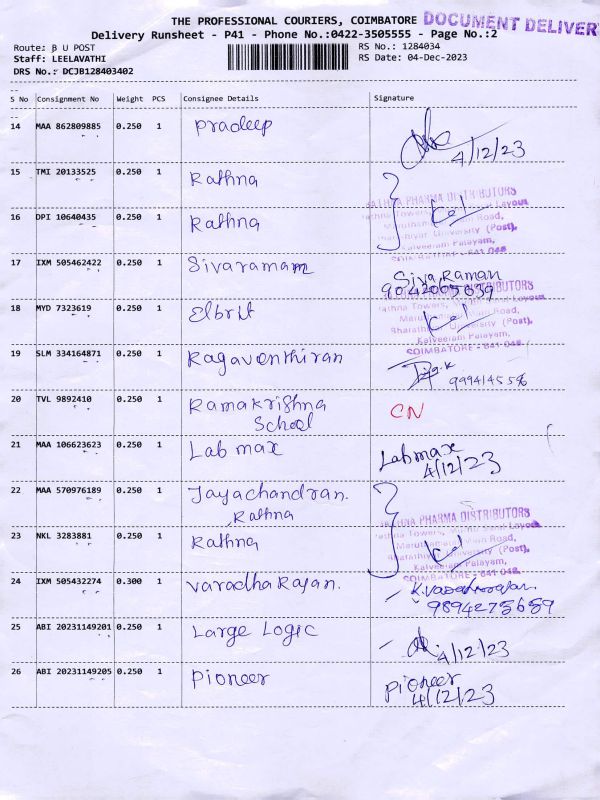 THE PROFESSIONAL COURIERS, COIMBATORE DOCUMENT DELIVER
Delivery Runsheet - P41 - Phone No.:0422-3505555 - Page No.:2
Route: β U POST
Staff: LEELAVATHI
DRS No.: DCJB128403402
RS No.: 1284034
RS Date: 04-Dec-2023
S No Consignment No Weight PCS Consignee Details Signature
14 MAA 862809885 0.250 1 Pradeep
4/12/23
15 TMI 20133525 0.250 1 Rathna
16 DPI 10640435 0.250 1 Rathna
RATHNA PHARMA DISTRIBUTORS
Kalveeram Palayam,
COIMBATORE - 641 046
17 IXM 505462422 0.250 1 Sivaramam Siva Raman
18 MYD 7323619 0.250 1 Elbrit
DISTRIBUTORS
Bharathiar University (Post),
Kalveeram Palayam,
COIMBATORE - 641 046
19 SLM 334164871 0.250 1 Ragaventhiran
20 TVL 9892410 0.250 1 Ramakrishna CN
School
21 MAA 106623623 0.250 1 Lab max Labmax
4/12/23
22 MAA 570976189 0.250 1 Jayachandran.
Rathna
RATHNA PHARMA DISTRIBUTORS
23 NKL 3283881 0.250 1 Rathna
University (Post),
Kalveeram Palayam,
COIMBATORE - 641 046
24 IXM 505432274 0.300 1 Varadha Rajan. K.Vasadhrajan
9894275659
25 ABI 20231149201 0.250 1 Large Logic
4/12/23
26 ABI 20231149205 0.250 1 Pioneer Pioneer
4/12/23